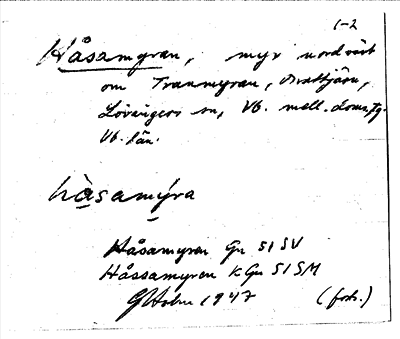 1-2
Håsamyran, myr nordväst
om Tranmyran, Svarttjärn,
Lövångers sn, Vb. mell. doms.,
Vb. län.
håsamýra
Håsamyran Gn 51 SV
Håssamyren k Gn 51 SM
GHolm 1947 (forts.)